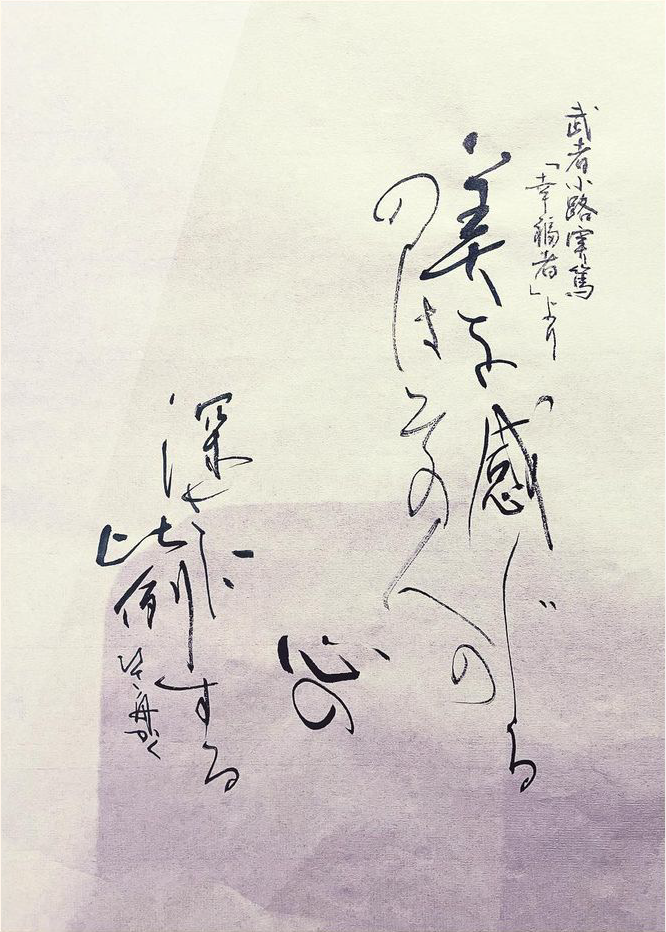 武者小路実篤
「幸福者」より
美を感じる
のはその人の
心の
深さに
比例する